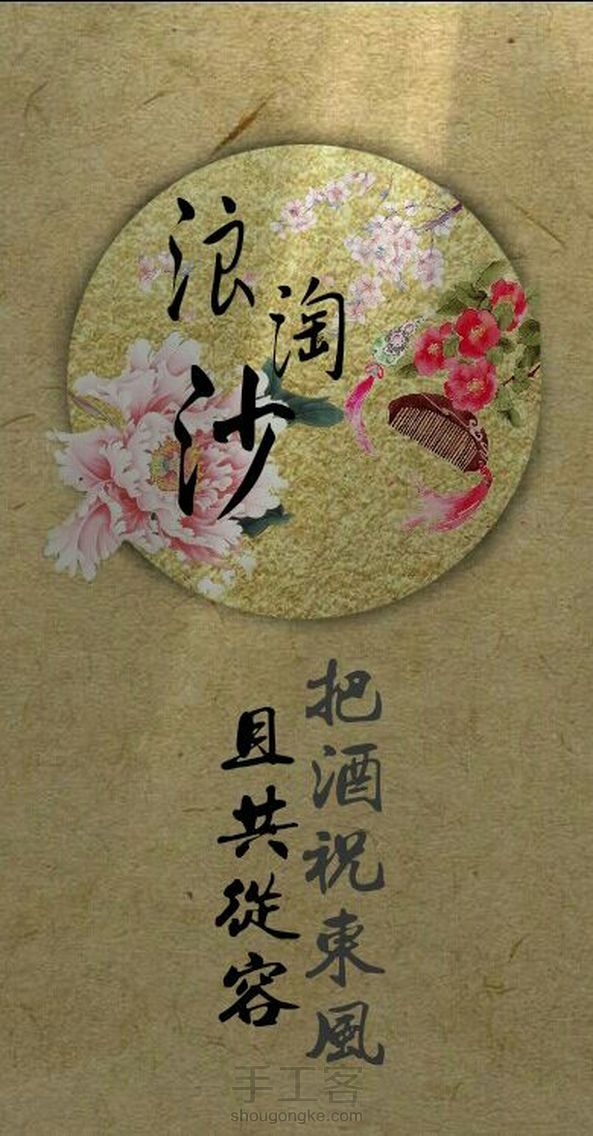 浪
淘
沙
把酒祝東風
且共從容
手工客
shougongke.com